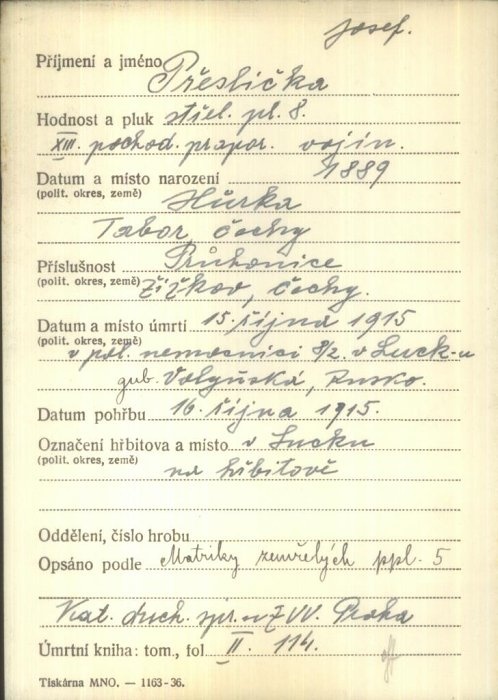 Josef.
Příjmení a jméno Přeslička
Hodnost a pluk střel. pl. 8.
XIII. pochod. prapor. vojín.
Datum a místo narození 1889
(polit. okres, země) Hůrka
Tabor, Čechy
Příslušnost Průhonice
(polit. okres, země) Žižkov, Čechy.
Datum a místo úmrtí 15. října 1915
(polit. okres, země) v pol. nemocnici 8/2. v Luck-u
gub. Volyňská, Rusko.
Datum pohřbu 16. října 1915.
Označení hřbitova a místo v Lucku
(polit. okres, země) na hřbitově
Oddělení, číslo hrobu
Opsáno podle Matriky zemřelých ppl. 5
Kat. duch. spr. Praha
Úmrtní kniha: tom., fol II. 114.
Tiskárna MNO. — 1163-36.